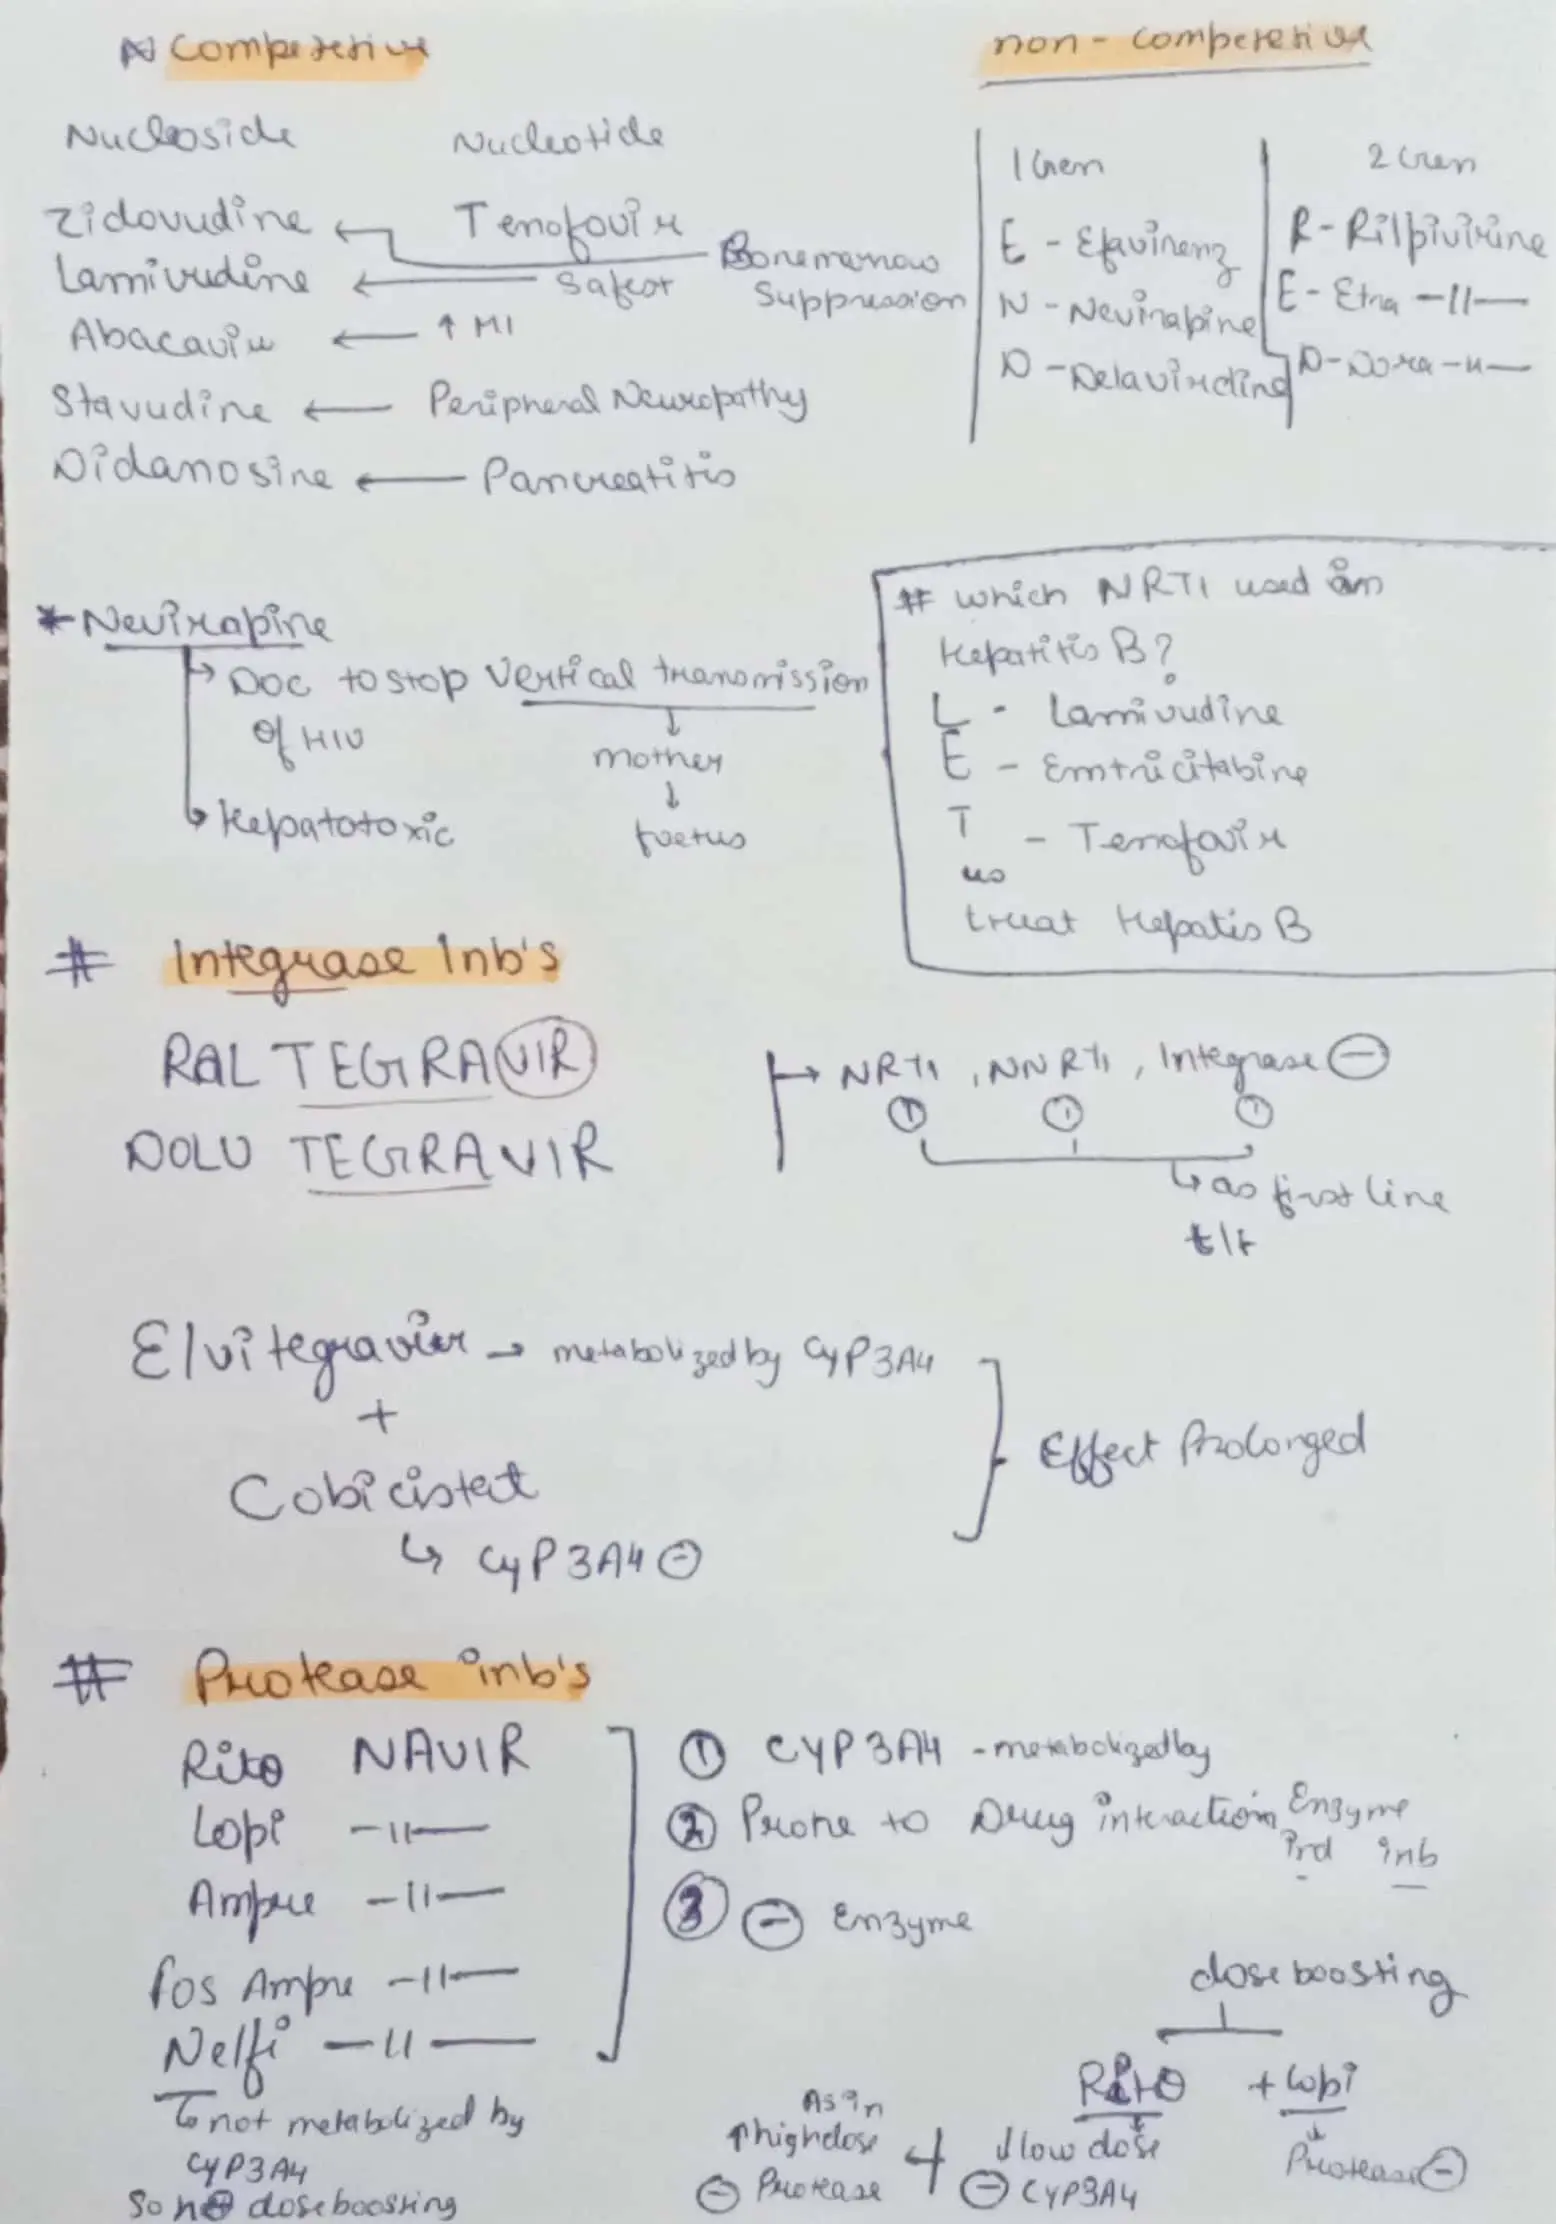 Competetive
non-competetive
Nucleoside
Nucleotide
1 Gen
2 Gen
Zidovudine
Tenofovir
Bonemarrow Suppression
Lamivudine ← Safest
Abacavir ← ↑ MI
Stavudine ← Peripheral Neuropathy
Didanosine ← Pancreatitis
E - Efavirenz
N - Nevirapine
D - Delavirdine
R - Rilpivirine
E - Etra -11-
D - Dora -11-
* Nevirapine
→ DOC to stop Vertical transmission
of HIV
↓
mother
↓
foetus
→ Hepatotoxic
# which NRTI used in
Hepatitis B?
L - Lamivudine
E - Emtricitabine
T - Tenofovir
us
treat Hepatis B
# Integrase Inb's
RAL TEGRAVIR
DOLU TEGRAVIR
→ NRTI, NNRTI, Integrase ⊖
① ① ①
↳ as first line
t/t
Elvitegravir → metabolized by CYP3A4
+
Cobicistat
↳ CYP3A4 ⊖
Effect Prolonged
# Protease inb's
Rito NAVIR
Lopi -11-
Ampre -11-
Fos Ampre -11-
Nelfi -11-
↳ not metabolized by
CYP3A4
So no dose boosting
① CYP3A4 - metabolized by
② Prone to Drug interaction Enzyme
Ird inb
③ ⊖ Enzyme
dose boosting
Rito + Lopi
↓ low dose
⊖ CYP3A4
↓
Protease ⊖
As in
↑ high dose
⊖ Protease
+